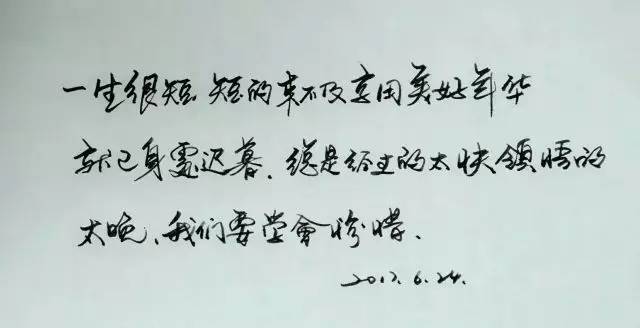 一生很短,短的来不及享用美好年华
就已身处迟暮.总是经过的太快领悟的
太晚,我们要学會珍惜.
2017.6.24.